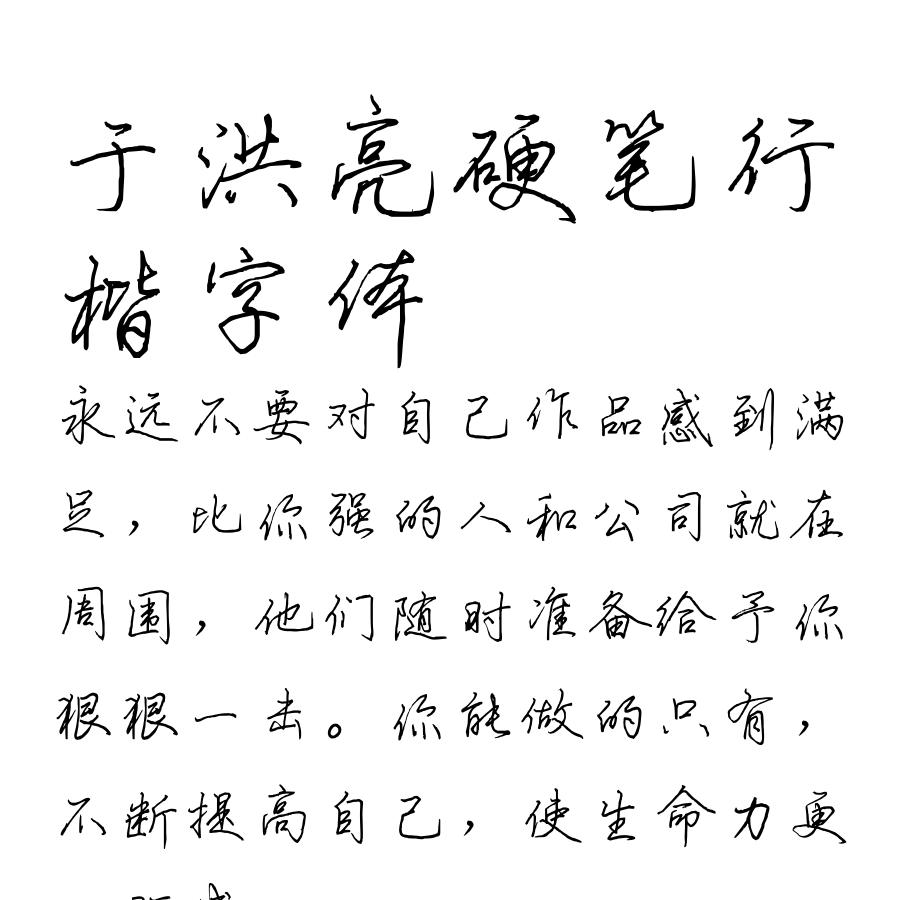 于洪亮硬笔行
楷字体
永远不要对自己作品感到满
足，比你强的人和公司就在
周围，他们随时准备给予你
狠狠一击。你能做的只有，
不断提高自己，使生命力更